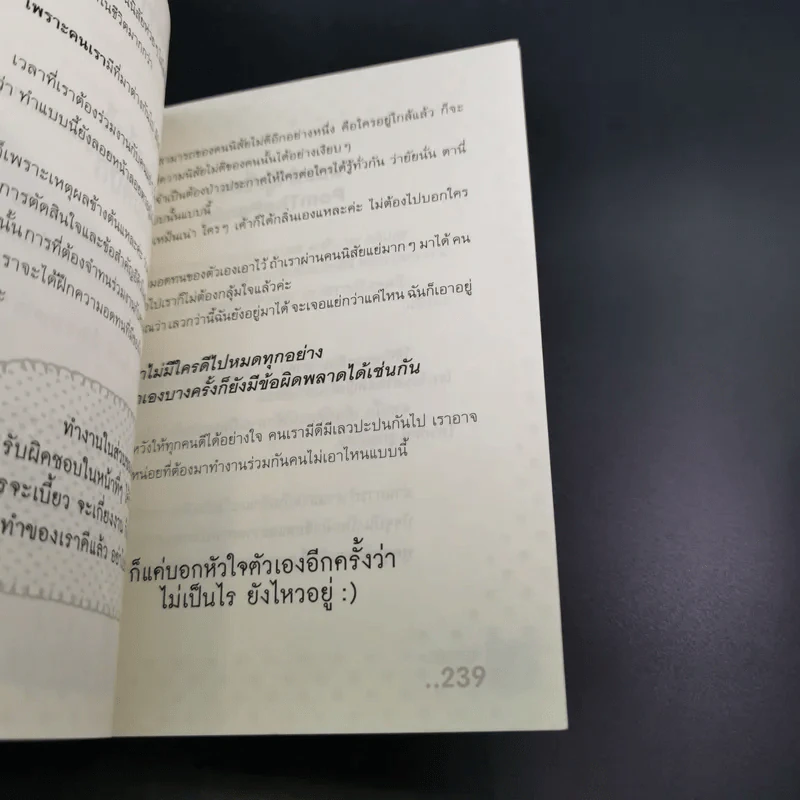 เพราะคนเรามีที่มาต่างกัน
เวลาที่เราต้องร่วมงานกับคน
ว่า ทำแบบนี้ยังลอยหน้าลอย
เพราะเหตุผลข้างต้นแหละค่ะ
การตัดสินใจและข้อสำคัญ
นั้น การที่ต้องจำทนร่วมงาน
ราจะได้ฝึกความอดทนที่
ทำงานในส่วน
รับผิดชอบในหน้าที่ๆ
จะเบี้ยว จะเกี่ยงงาน
ทำของเราดีแล้ว
สามารถของคนนิสัยไม่ดีอีกอย่างหนึ่ง คือใครอยู่ใกล้แล้ว ก็จะ
ความนิสัยไม่ดีของคนนั้นได้อย่างเงียบๆ
จำเป็นต้องป่าวประกาศให้ใครต่อใครได้รู้ทั่วกัน ว่ายัยนั่น ตานี่
แบบนั้นแบบนี้
เหม็นเน่า ใครๆ เค้าก็ได้กลิ่นเองแหละค่ะ ไม่ต้องไปบอกใคร
อดทนของตัวเองเอาไว้ ถ้าเราผ่านคนนิสัยแย่มากๆ มาได้ คน
ไปเราก็ไม่ต้องกลุ้มใจแล้วค่ะ
ว่า เลวกว่านี้ฉันยังอยู่มาได้ จะเจอแย่กว่าแค่ไหน ฉันก็เอาอยู่
ไม่มีใครดีไปหมดทุกอย่าง
เองบางครั้งก็ยังมีข้อผิดพลาดได้เช่นกัน
หวังให้ทุกคนดีได้อย่างใจ คนเรามีดีมีเลวปะปนกันไป เราอาจ
หน่อยที่ต้องมาทำงานร่วมกับคนไม่เอาไหนแบบนี้
ก็แค่บอกหัวใจตัวเองอีกครั้งว่า
ไม่เป็นไร ยังไหวอยู่ :)
..239